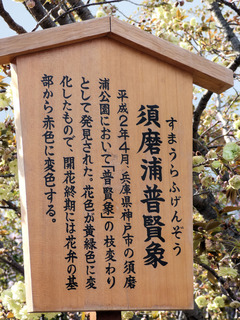 すまうらふげんぞう
須磨浦普賢象
平成２年４月、兵庫県神戸市の須磨
浦公園において「普賢象」の枝変わり
として発見された。花色が黄緑色に変
化したもので、開花終期には花弁の基
部から赤色に変色する。